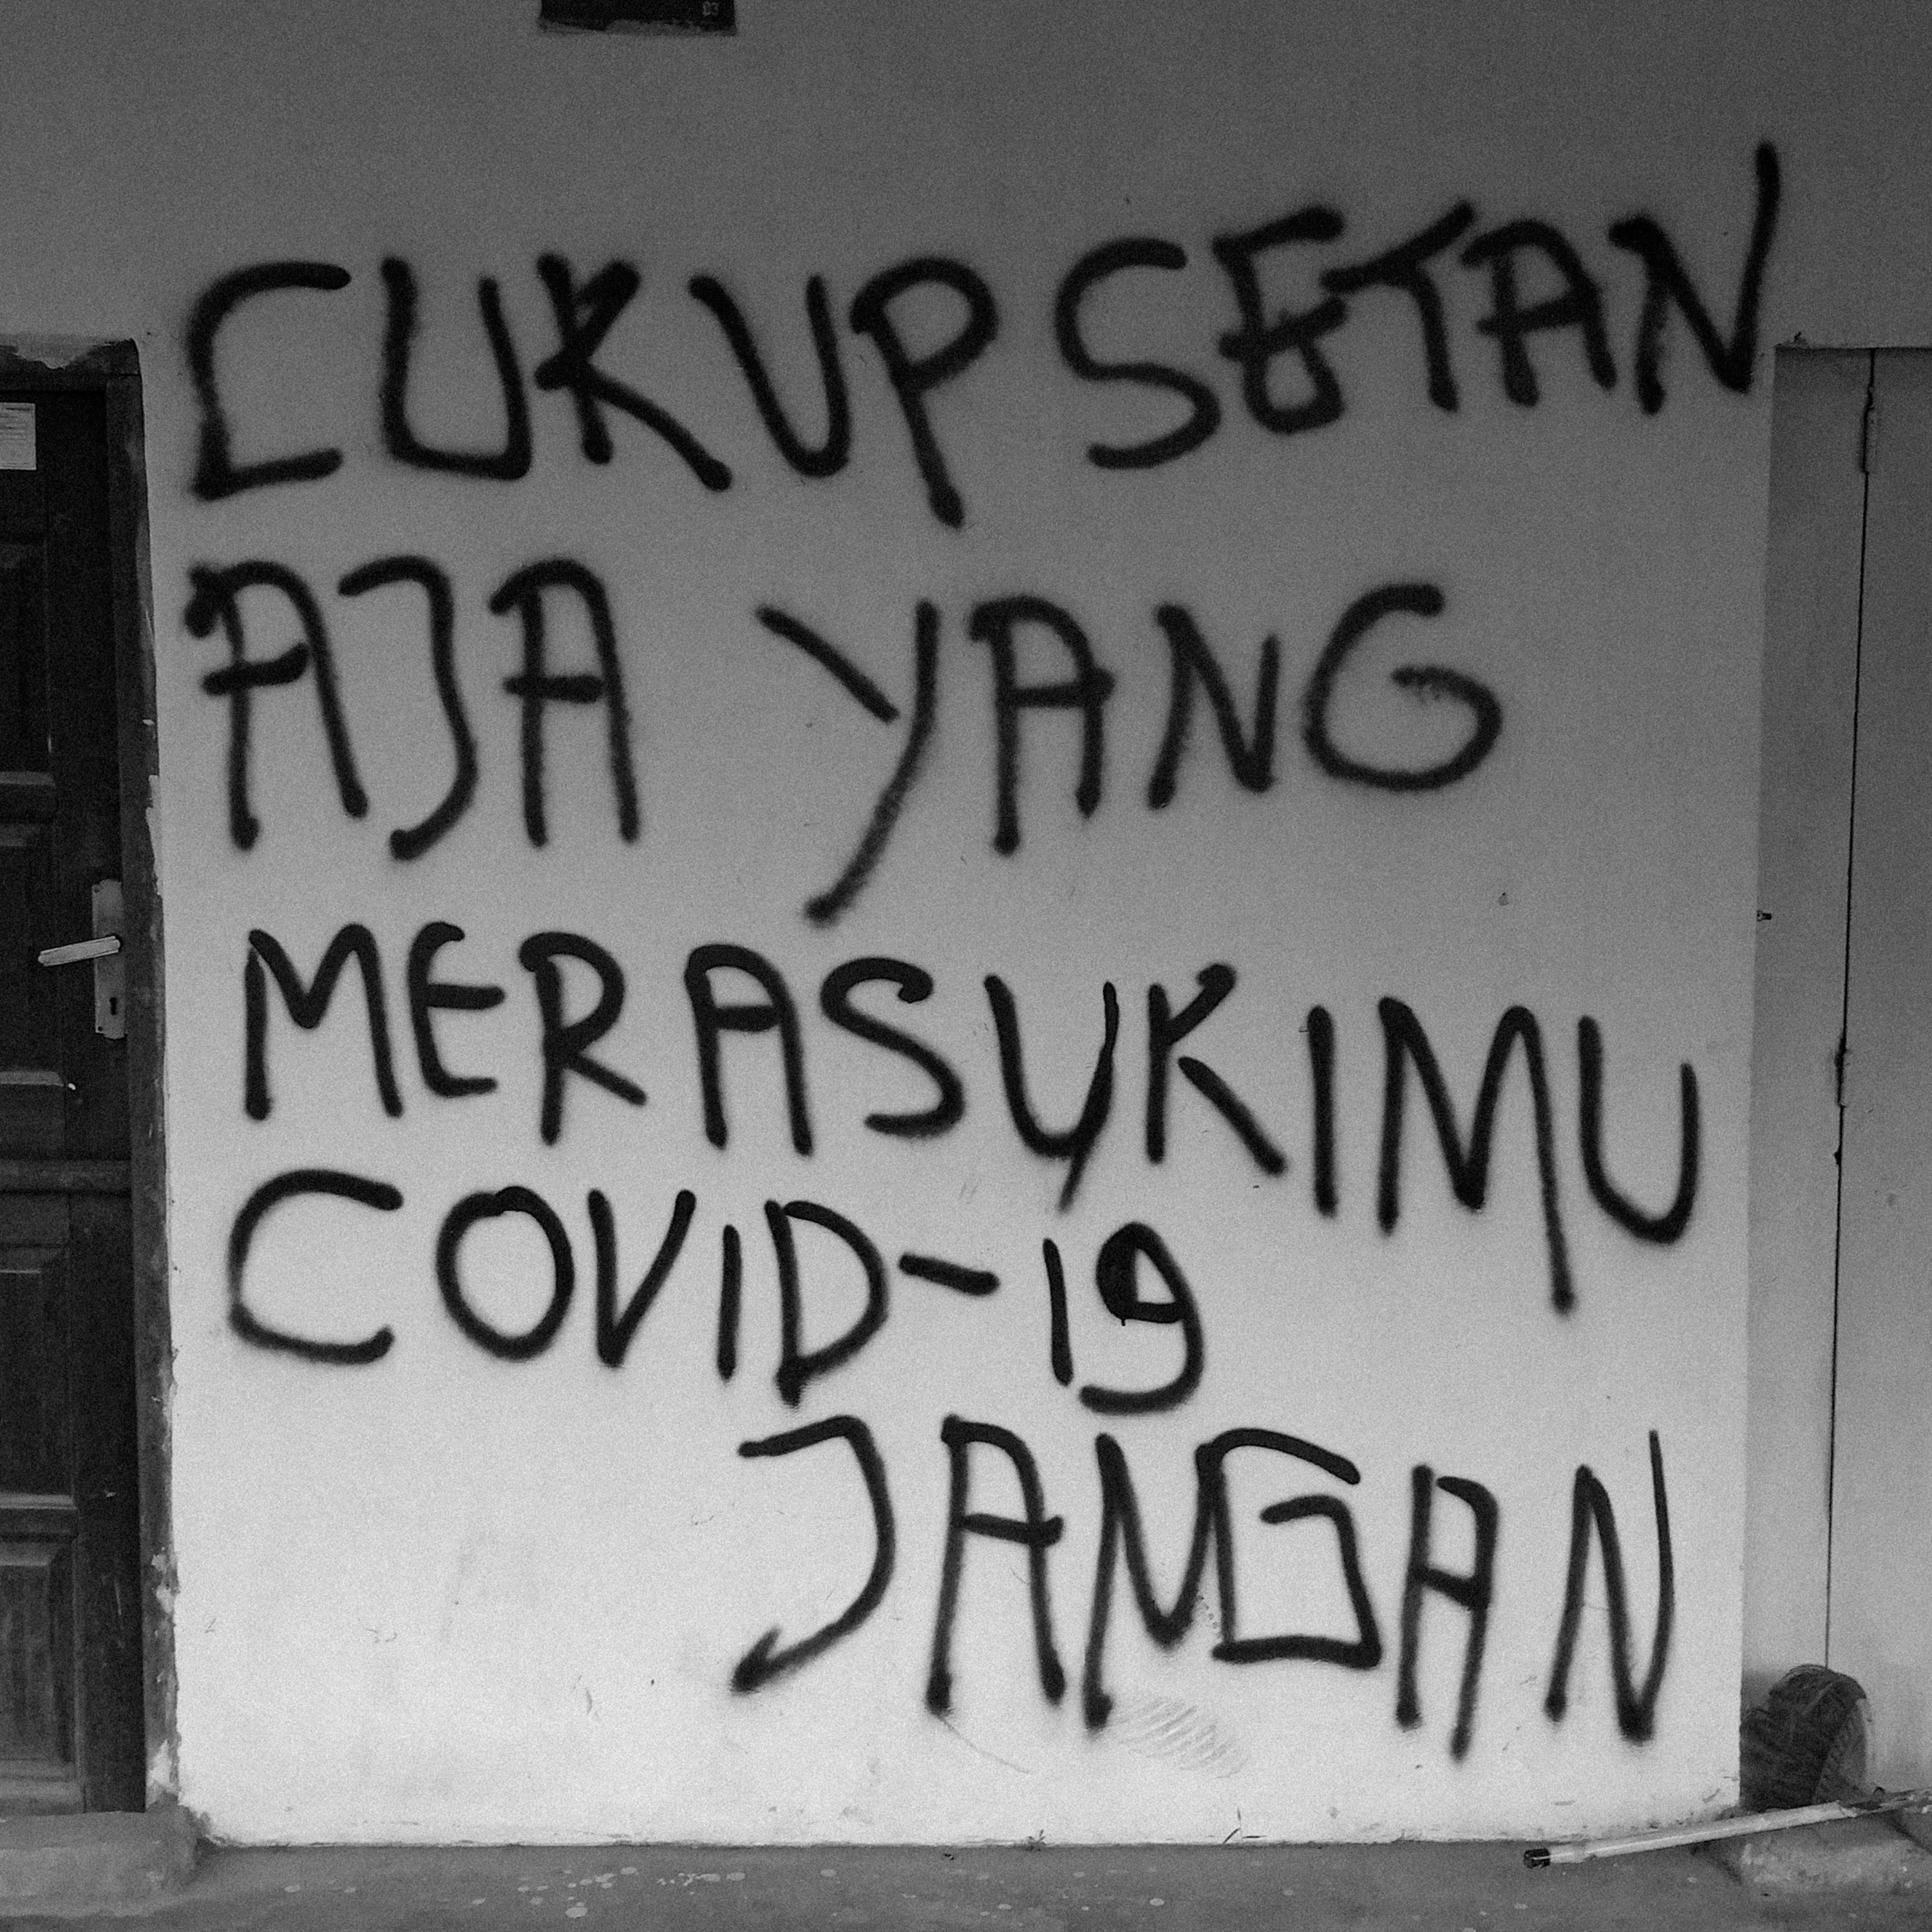 CUKUP SETAN
AJA YANG
MERASUKIMU
COVID-19
JANGAN